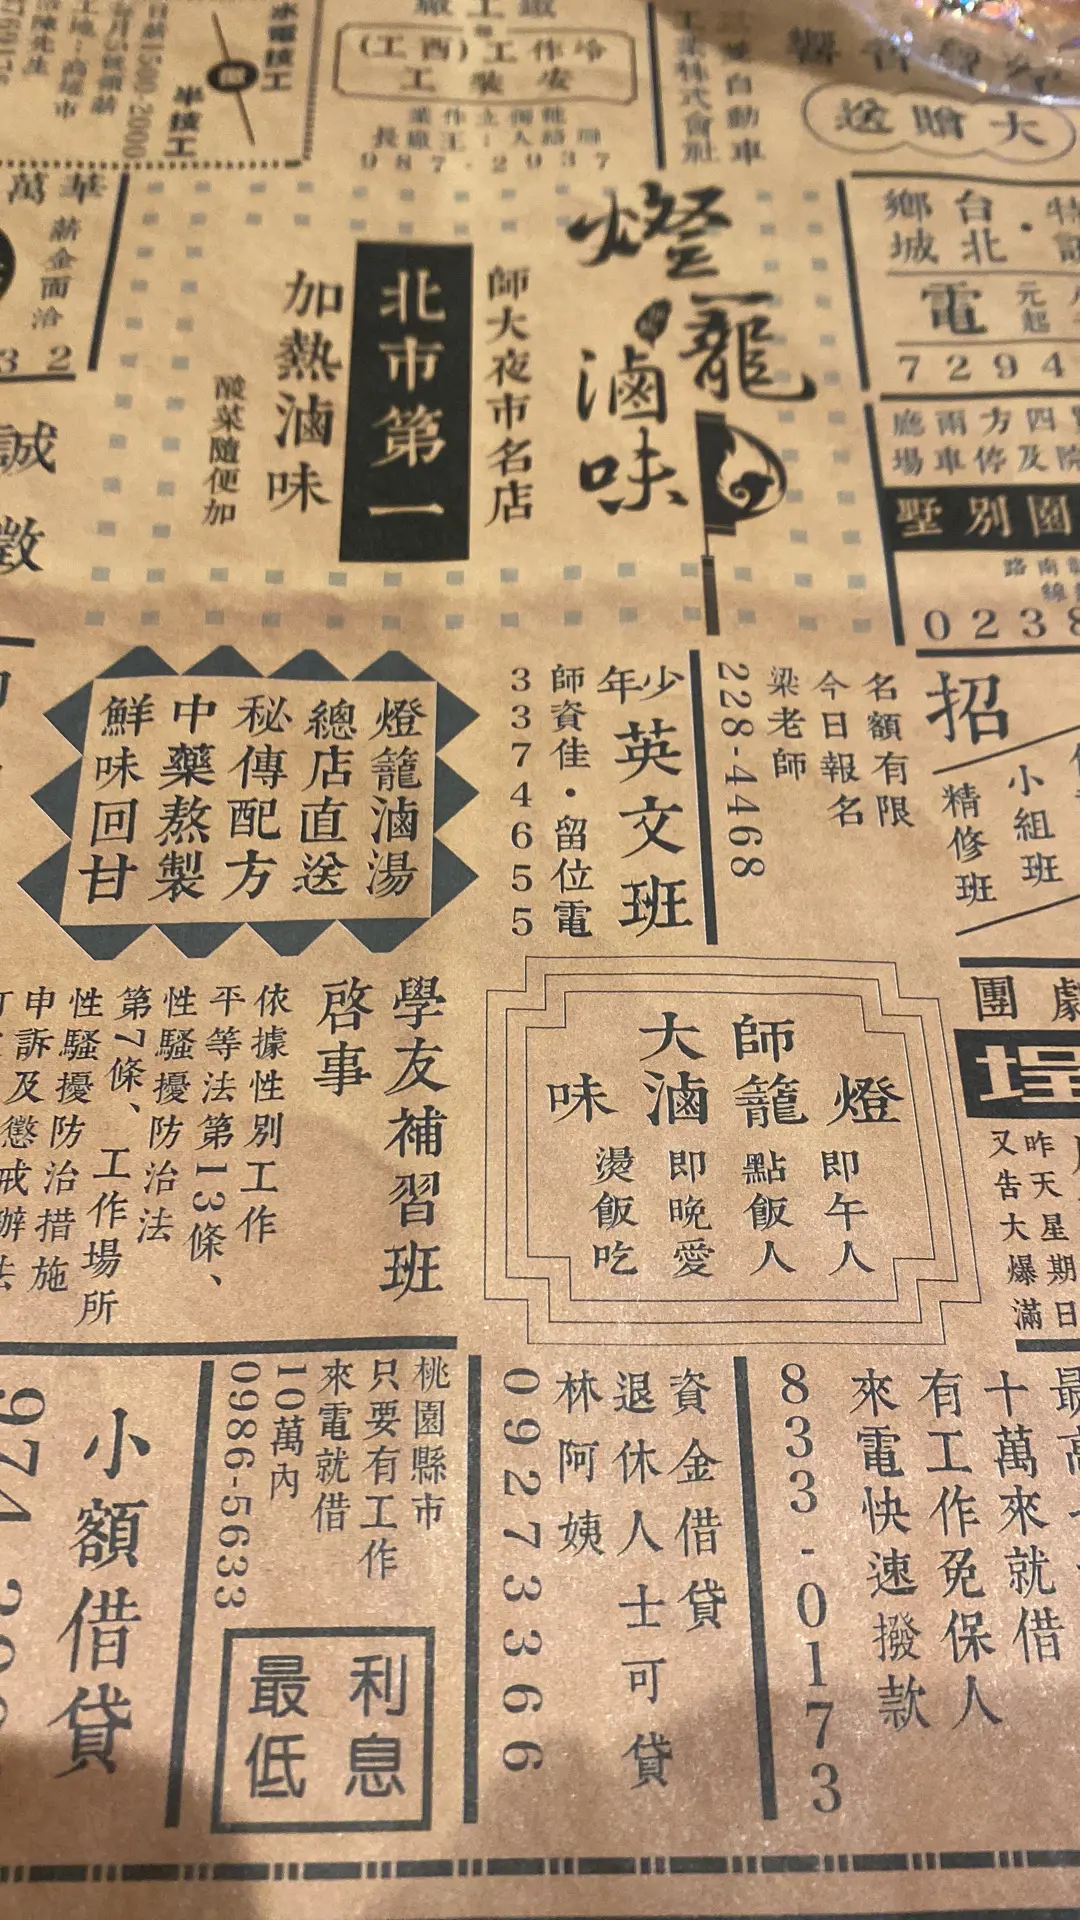 水電核工
半技工
(工西)工作冷
工裝安
987-2937
三菱自動車
工業株式會社
送贈大
華萬
薪金面洽
32
誠
徵
燈籠
滷味
師大夜市名店
北市第一
加熱滷味
酸菜隨便加
台北
鄉城
電
元起
7294
四方兩廳
及停車場
墅別園
0238
燈籠滷湯
總店直送
秘傳配方
中藥熬製
鮮味回甘
少年
英文班
師資佳・留位電
3374655
名額有限
今日報名
梁老師
228-4468
招
小組班
精修班
學友補習班
啓事
依據性別工作
平等法第13條、
性騷擾防治法
第7條、工作場所
性騷擾防治措施
申訴及懲戒辦法
師大
燈籠滷味
即午人
點飯人
即晚愛
燙飯吃
劇團
昨天星期日
又告大爆滿
十萬來就借
有工作免保人
來電快速撥款
833-0173
資金借貸
退休人士可貸
林阿姨
092733366
桃園縣市
只要有工作
來電就借
10萬內
0986-5633
利息
最低
小額借貸